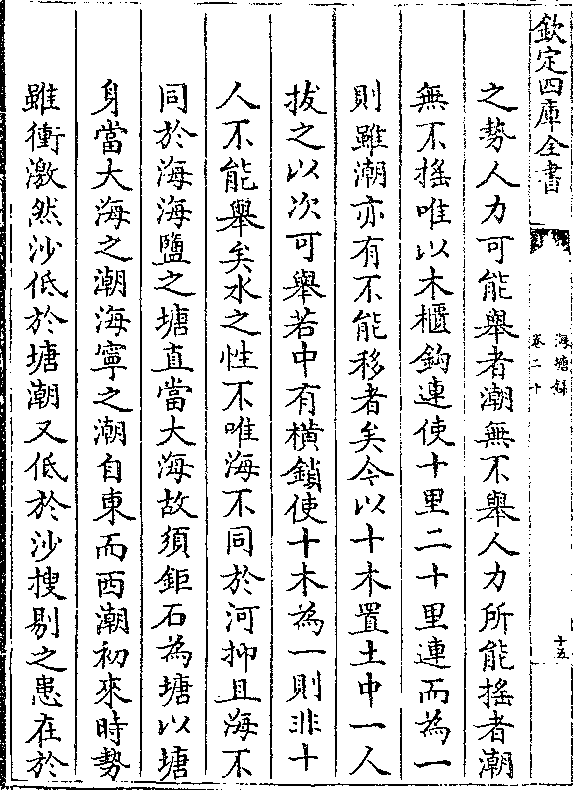 欽定四庫全書
海塘録
卷二十
十五
之勢人力可能舉者潮無不舉人力所能搖者潮
無不搖唯以木櫃鈎連使十里二十里連而為一
則雖潮亦有不能移者矣今以十木置土中一人
拔之以次可舉若中有横鎖使十木為一則非十
人不能舉矣水之性不唯海不同於河抑且海不
同於海海鹽之塘直當大海故須鉅石為塘以塘
身當大海之潮海寧之潮自東而西潮初來時勢
雖衝激然沙低於塘潮又低於沙搜剔之患在於